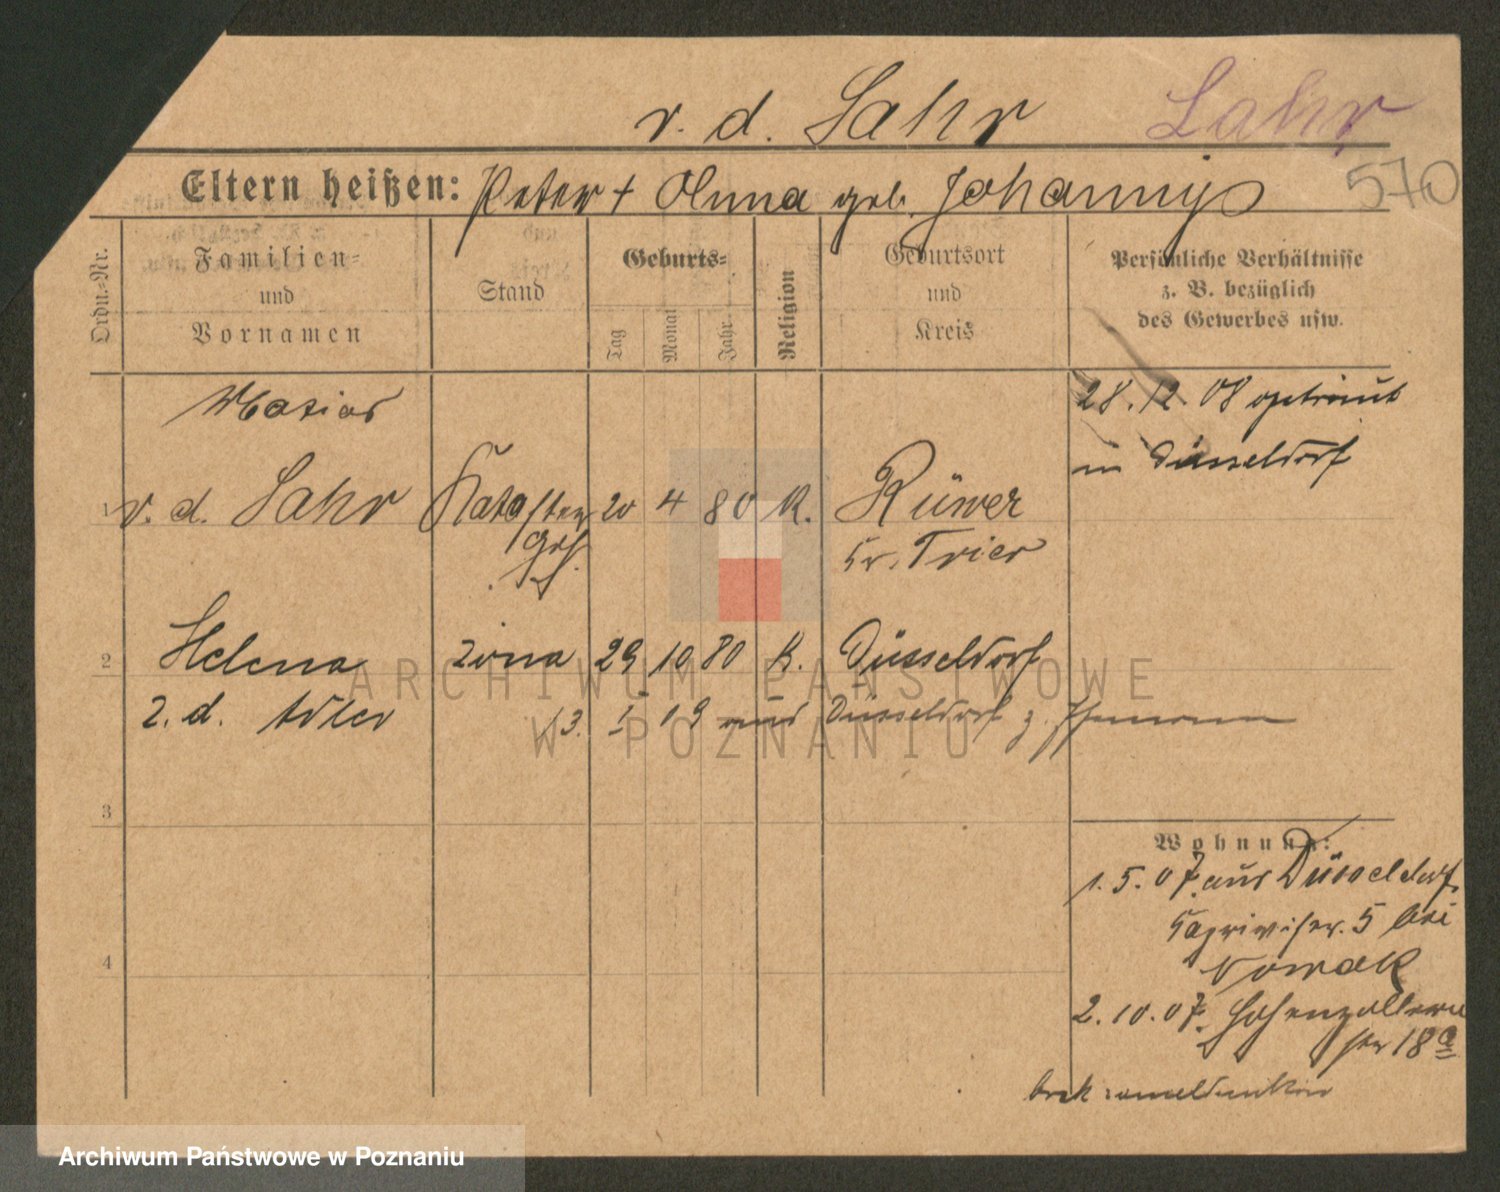 v. d. Lahr Lahr
570
Eltern heißen: Peter + Anna geb. Johannys
Ordn.-Nr.
Familien-
und
Vornamen
Stand
Geburts-
Tag
Monat
Jahr
Religion
Geburtsort
und
Kreis
Persönliche Verhältnisse
z. B. bezüglich
des Gewerbes usw.
28. 12. 08 getraut
in Düsseldorf
1 v. d. Lahr Kataster 20 4 80 K. Rüwer
Kr. Trier
2 Helena żona 29 10 80 K. Düsseldorf
z. d. Adler 13. I 09 aus Düsseldorf z.
3
4
Wohnung:
1. 5. 07. aus Düsseldorf.
5 bei
Nowak
2. 10. 07. Hohenzollern
str 18a
ARCHIWUM PAŃSTWOWE
W POZNANIU
Archiwum Państwowe w Poznaniu